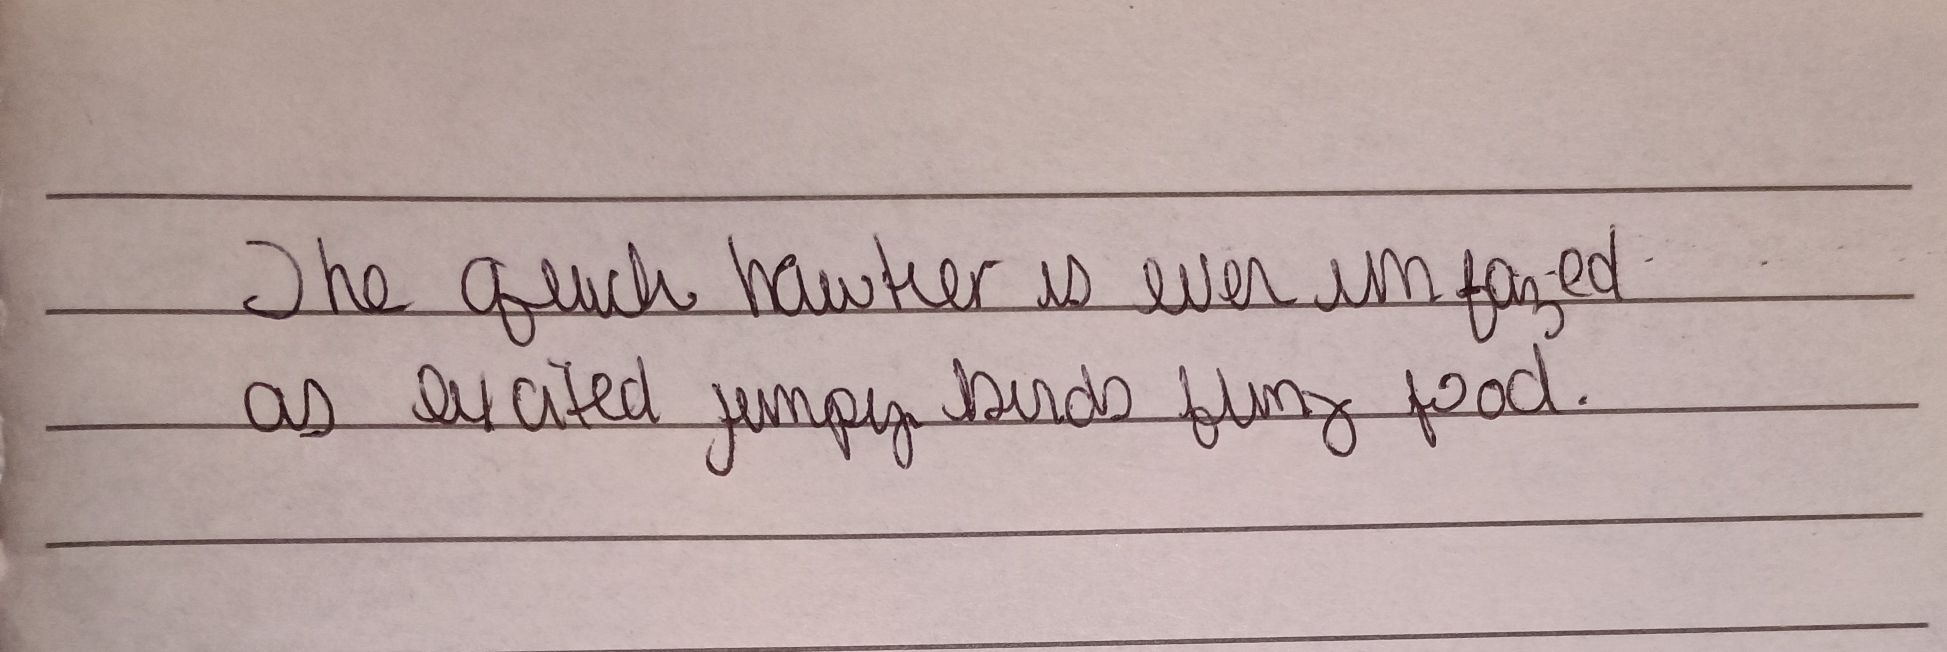 The quick hawker is ever unfazed
as excited jumpy birds fling food.